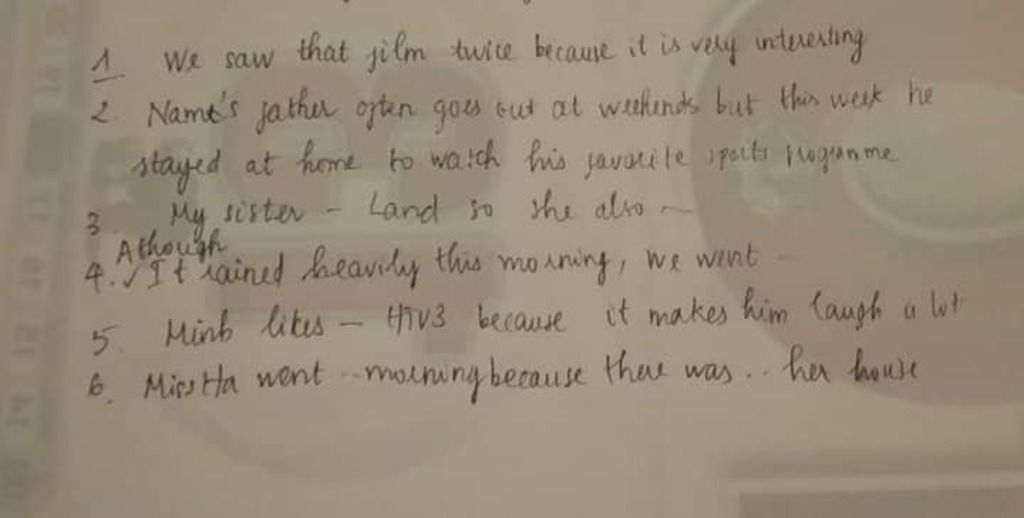 1. We saw that film twice because it is very interesting
2. Nam's father often goes out at weekends but this week he
stayed at home to watch his favourite sports programme
3. My sister - Land so she also ~
Athough
4. ✓ It rained heavily this morning, we went -
5. Minh likes - HTV3 because it makes him laugh a lot
6. Miss Ha went -- morning because there was .. her house